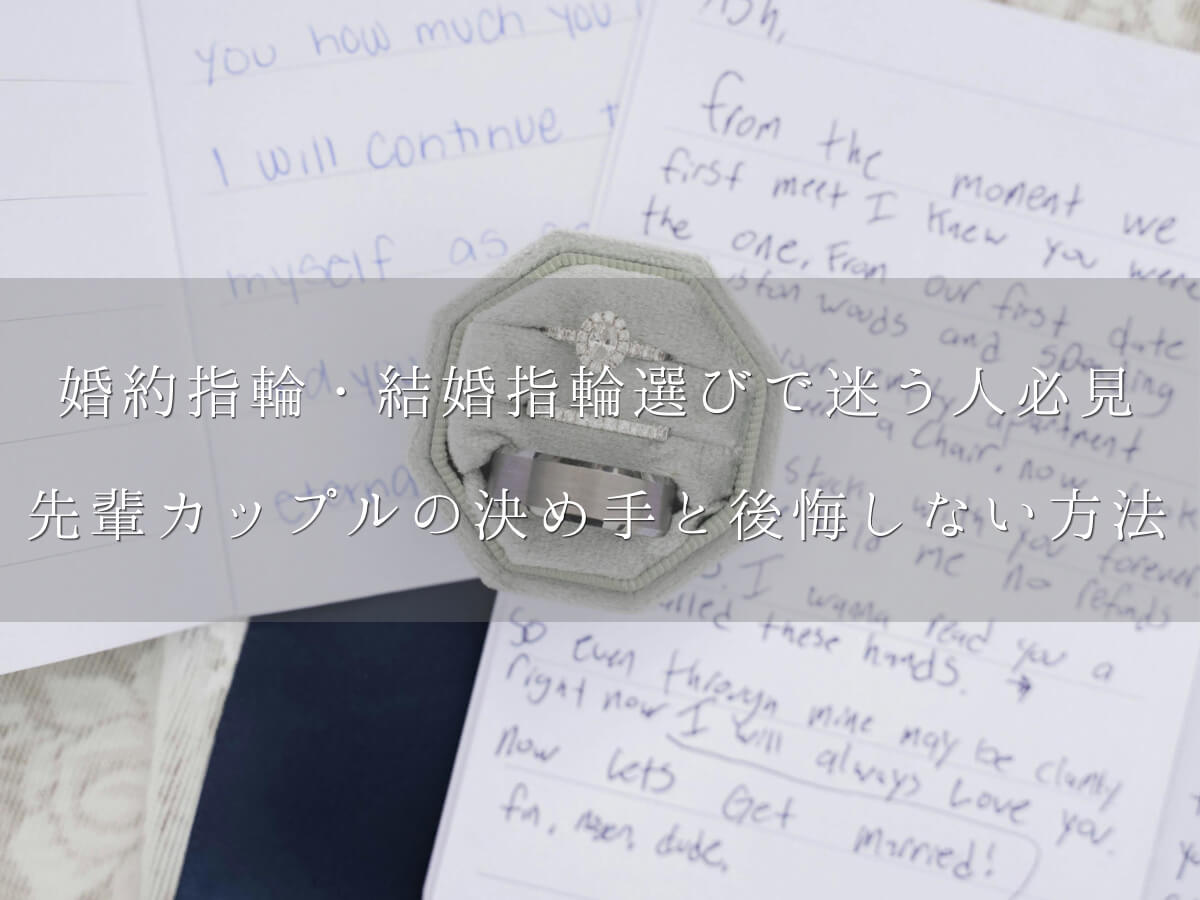 you how much you
I will continue
myself as
婚約指輪・結婚指輪選びで迷う人必見
先輩カップルの決め手と後悔しない方法
from the moment we
first meet I knew you were
the one, From our first date
woods and
apartment
a chair. now
stuck with you forever
me no refunds
I wanna read you a
these hands.
So even through mine may be clamy
right now I will always Love you.
now Lets Get married!